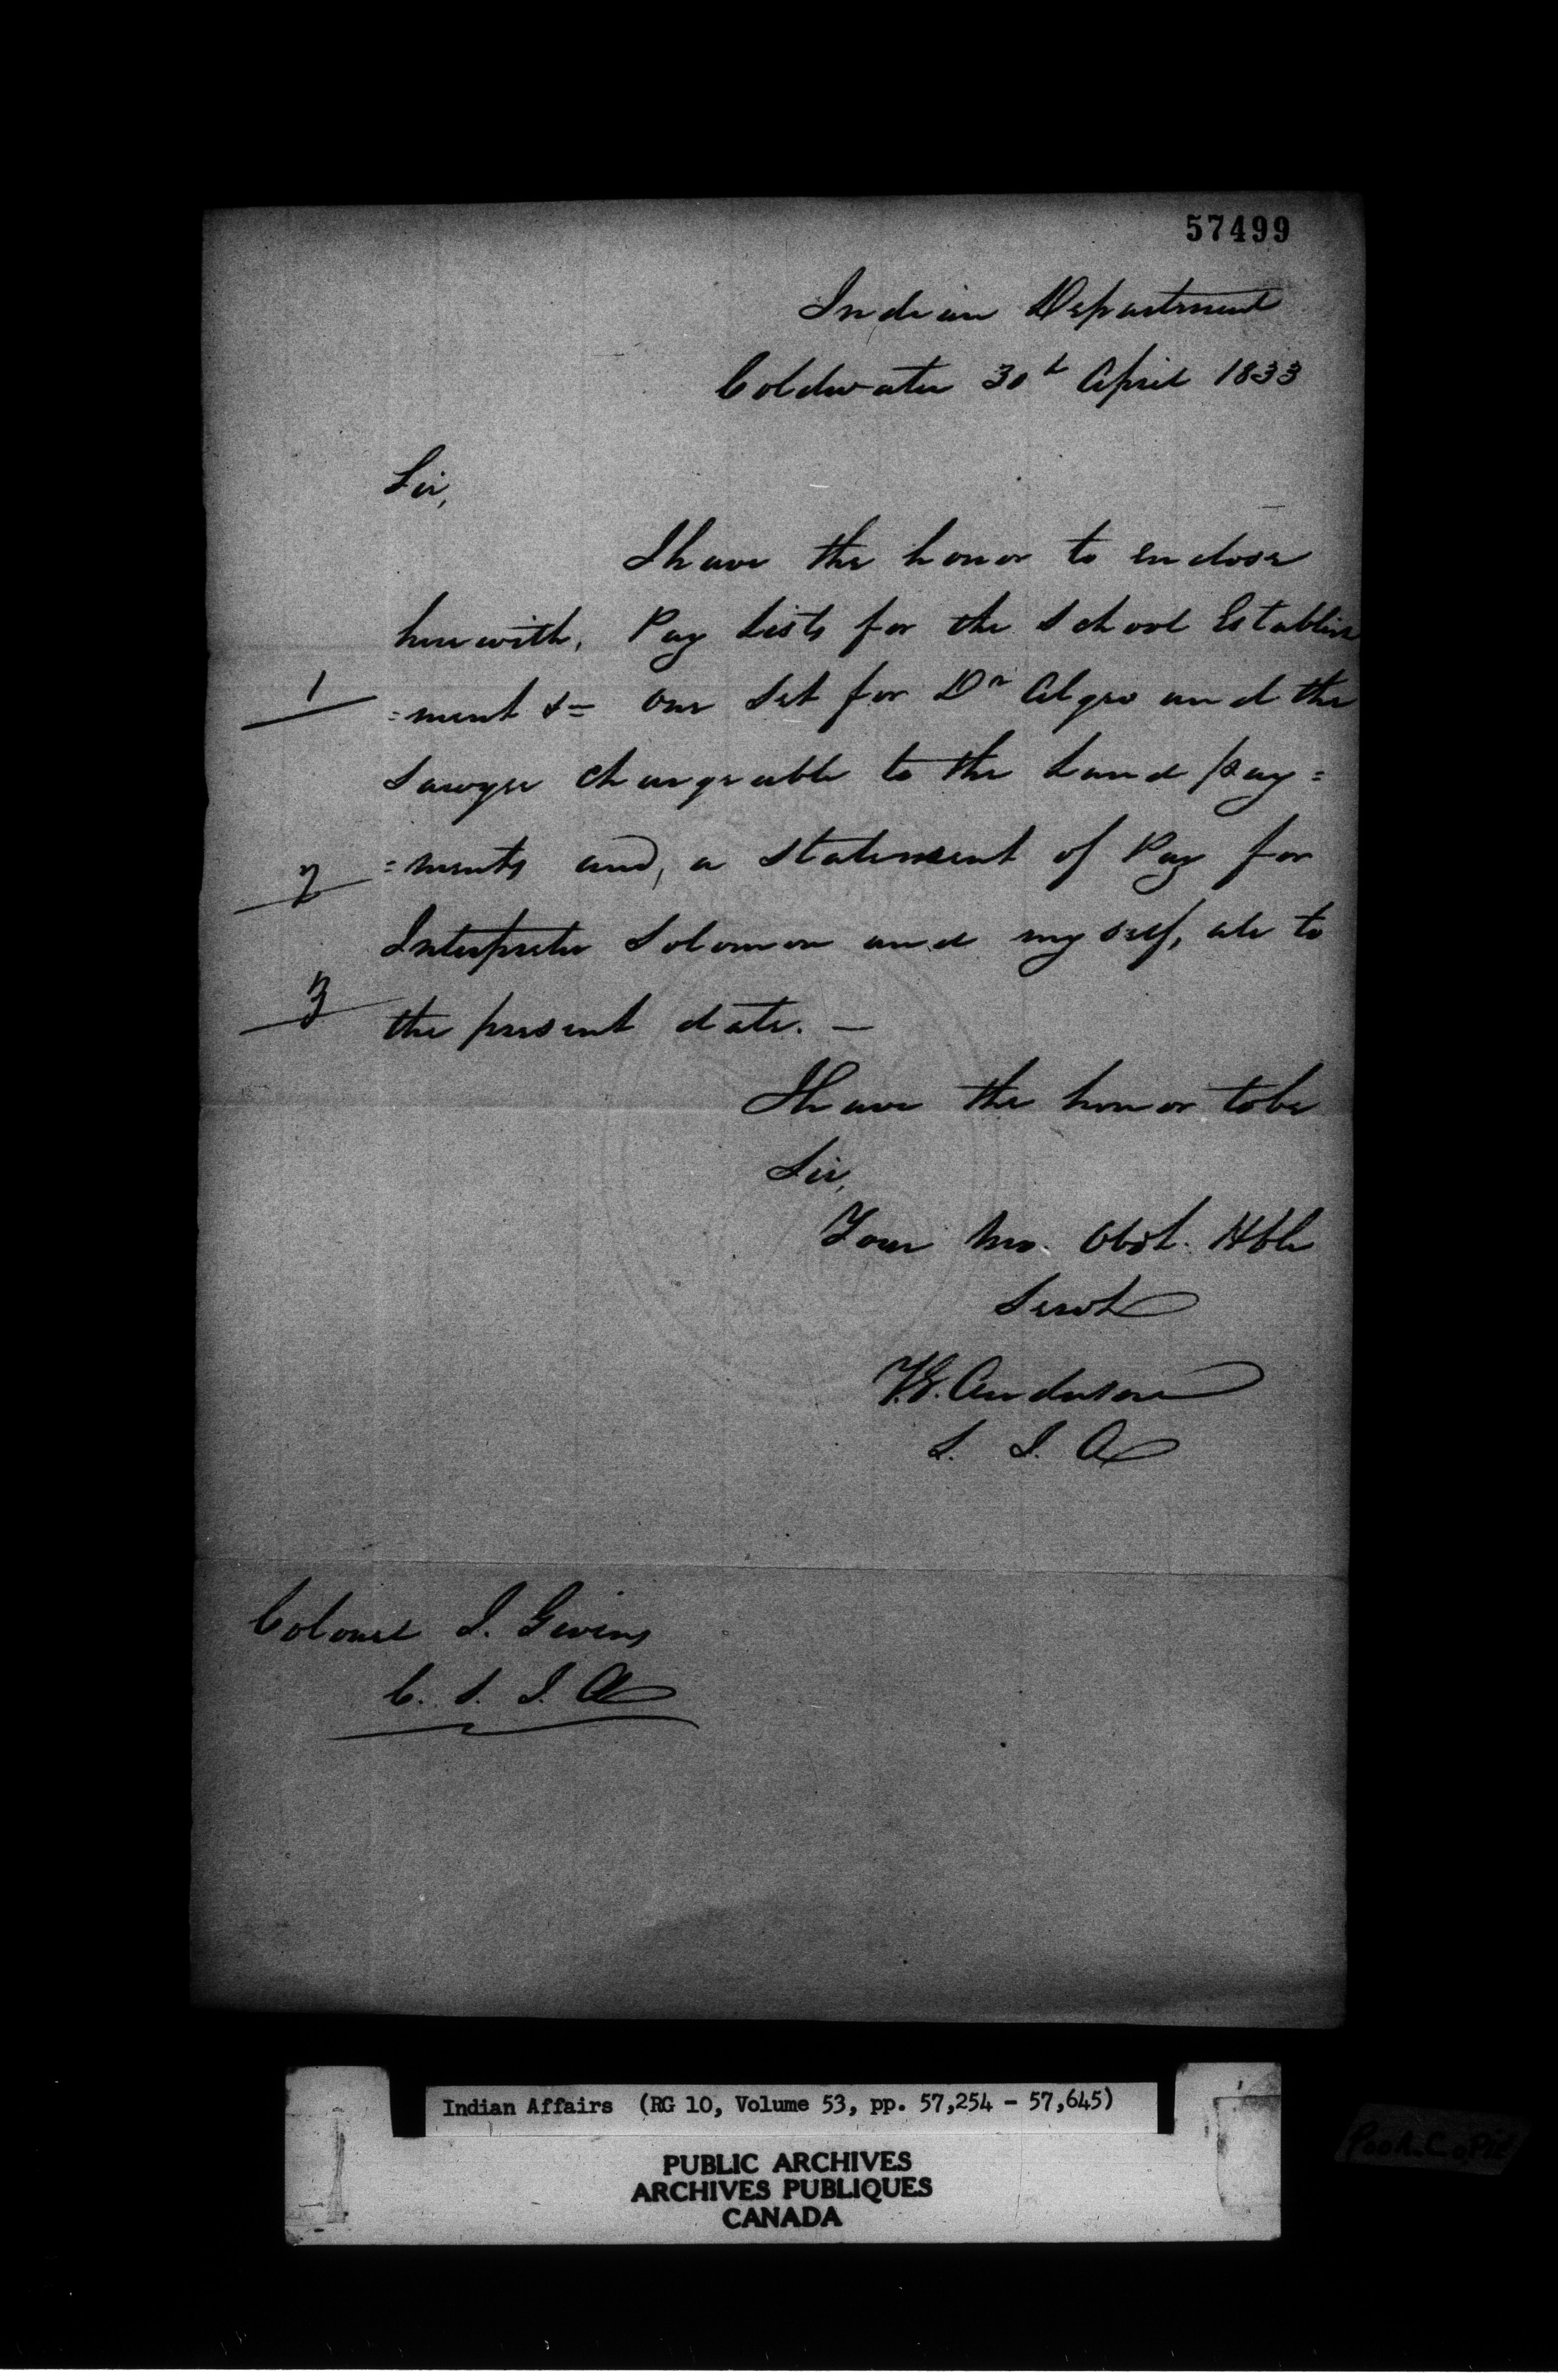 57499
Indian Department
Coldwater 30t April 1833
Sir,
I have the honor to enclose
herewith, Pay Lists for the School Establish
1
=ment &= One Set for Dr Algeo and the
Sawyer chargeable to the Land pay=
2
=ments and, a Statement of Pay for
Interpreter Solomon and myself, all to
3
the present date. —
I have the honor to be
Sir,
Your Mo. Obdt. Hble
Servt
T.G. Anderson
S. I. A
Colonel J. Givins
C. S. I. A
Indian Affairs (RG 10, Volume 53, pp. 57,254 - 57,645)
PUBLIC ARCHIVES
ARCHIVES PUBLIQUES
CANADA
Poor Copie